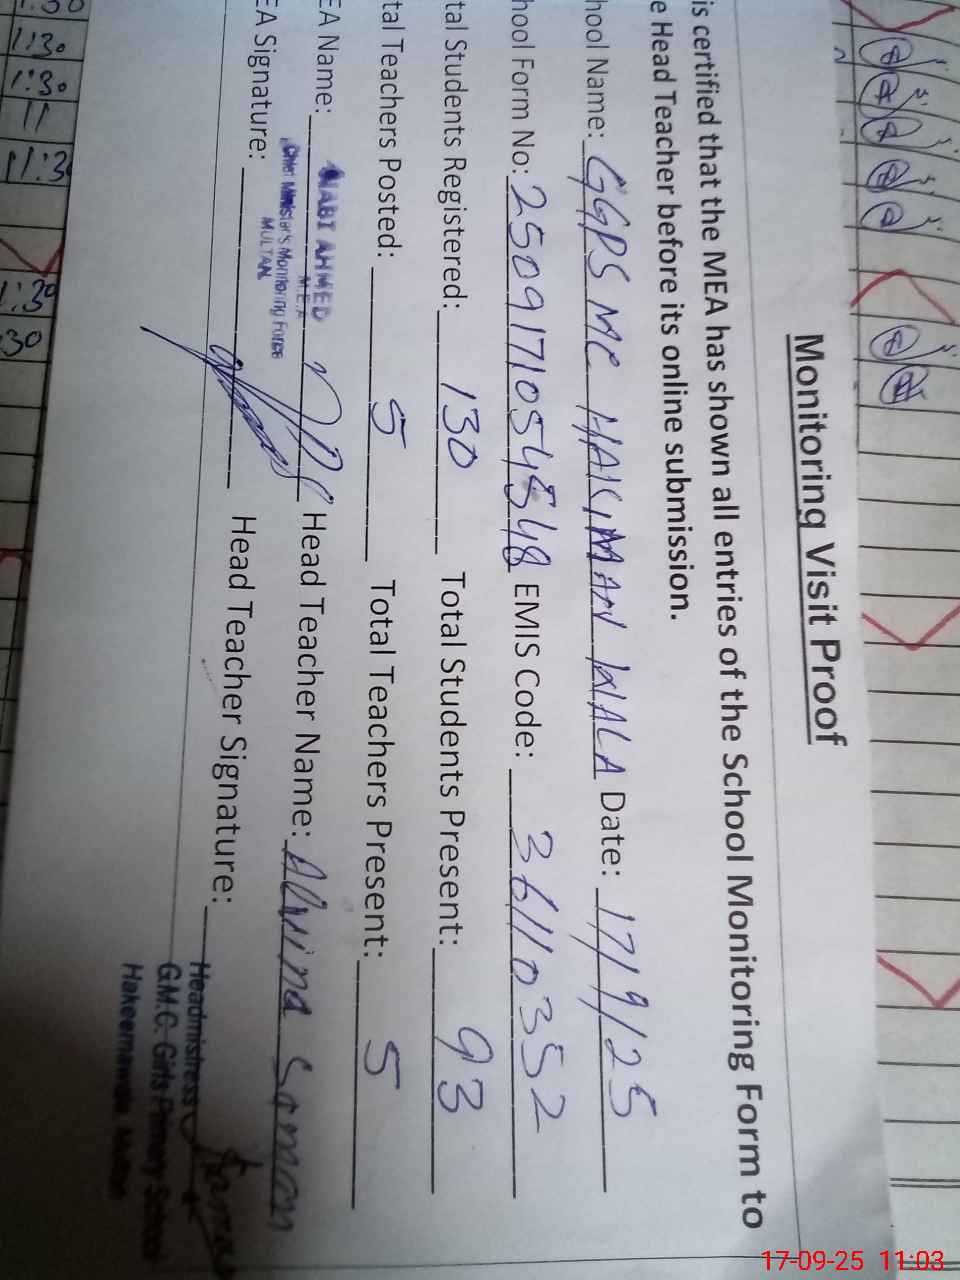 Monitoring Visit Proof
is certified that the MEA has shown all entries of the School Monitoring Form to
e Head Teacher before its online submission.
hool Name: GGPS MC HAKIMAN WALA Date: 17/9/25
hool Form No: 2509171054548 EMIS Code: 36110352
tal Students Registered: 130 Total Students Present: 93
tal Teachers Posted: 5 Total Teachers Present: 5
EA Name: NABI AHMED Head Teacher Name: Alvina Saman
M.E.A
Chief Minister's Monitoring Force
MULTAN
EA Signature: Head Teacher Signature:
Headmistress
G.M.C. Girls Primary School
Hakeemawala Multan
1:30
1:30
11
11:30
1:30
30
17-09-25 11:03